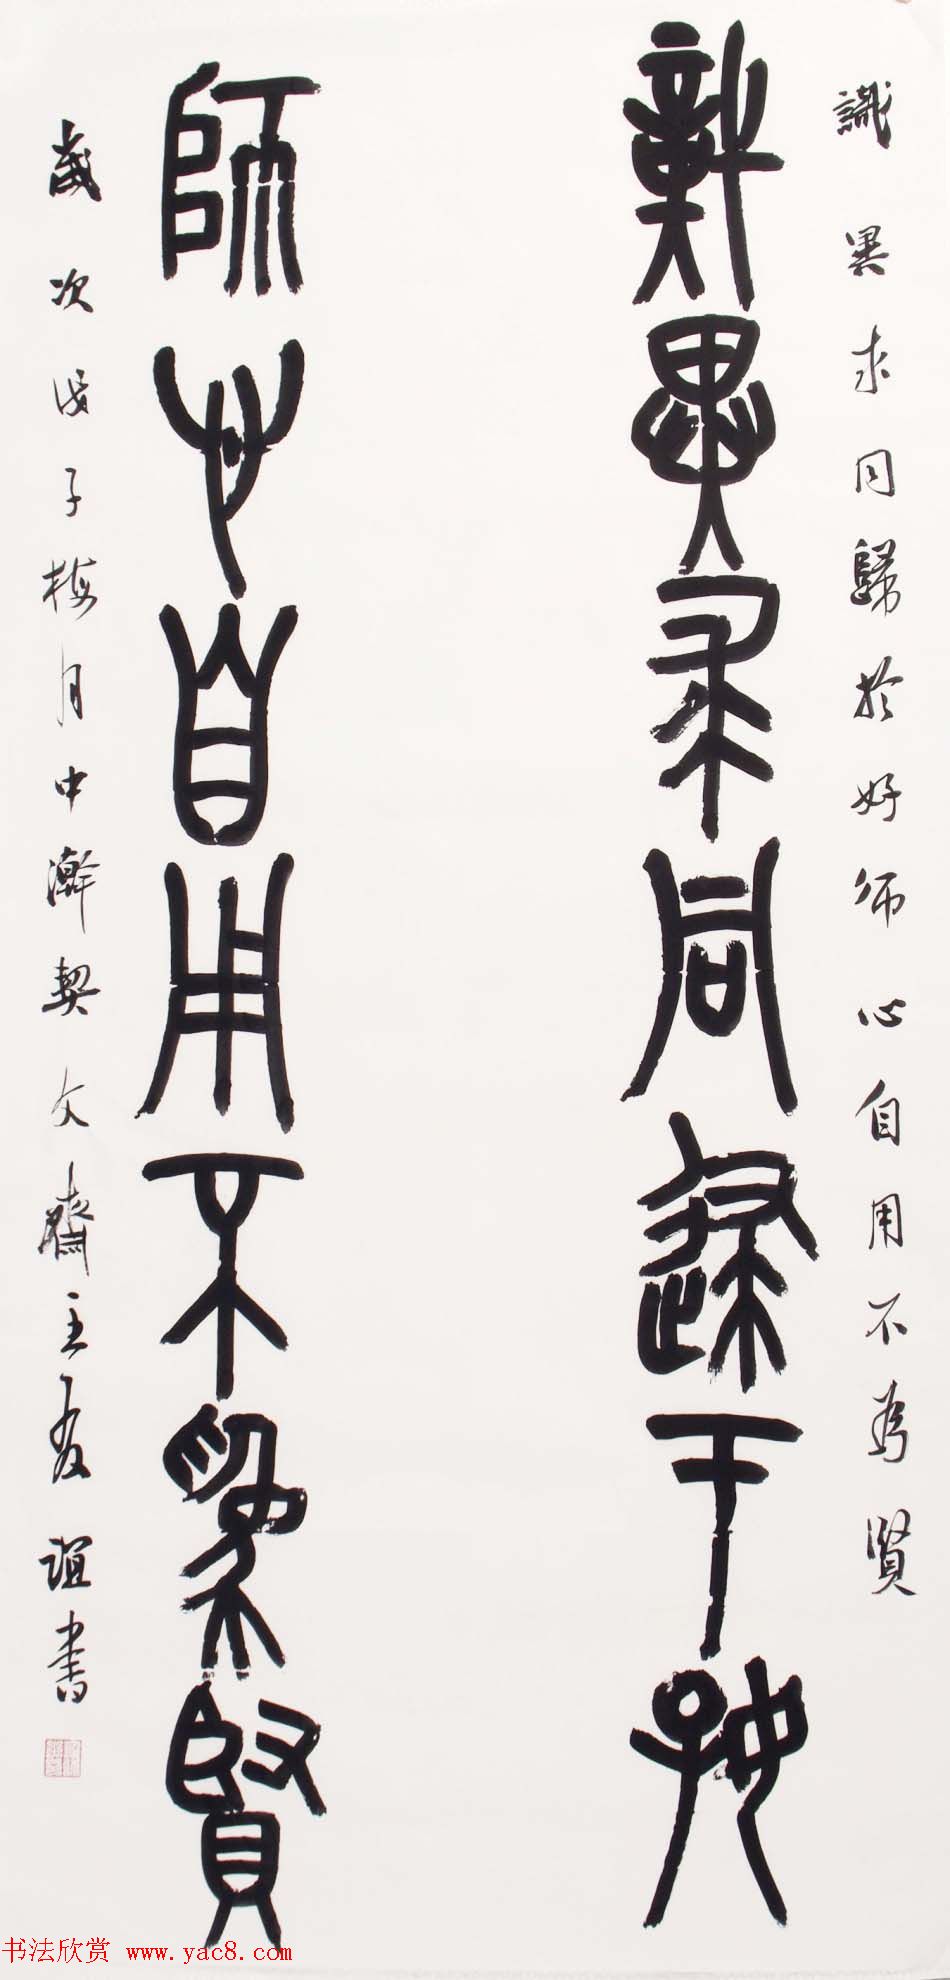 識異求同歸於好師心自用不為賢
識異求同歸于好
師心自用不為賢
歲次戊子梅月中澣契文齋主誼書
书法欣赏 www.yac8.com